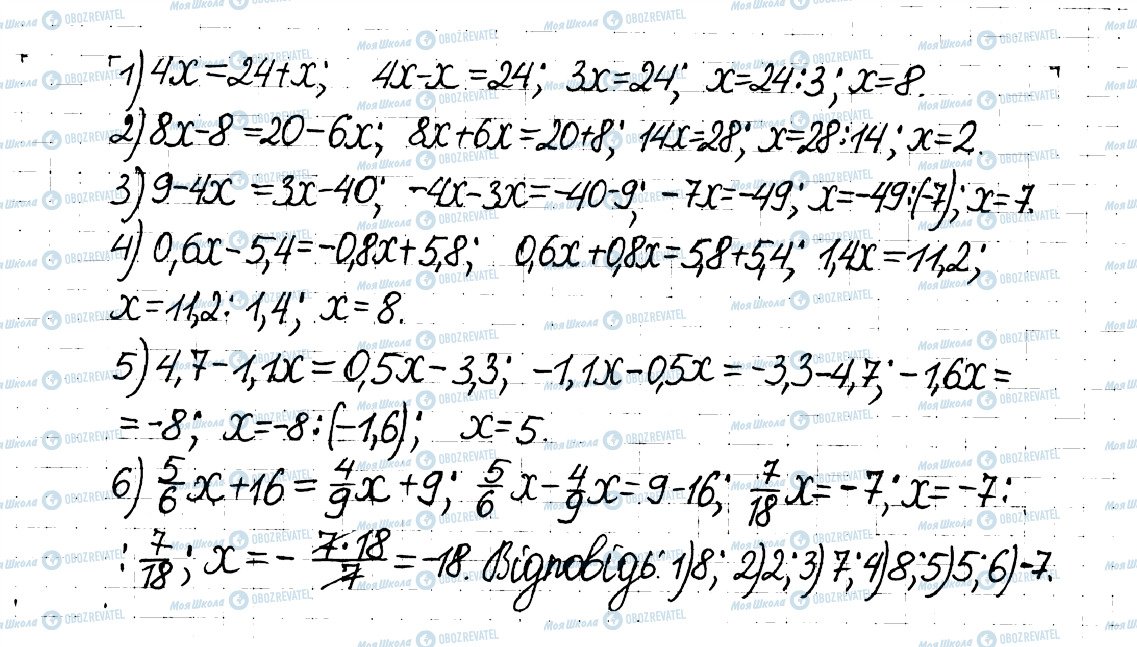 1) 4x=24+x; 4x-x=24; 3x=24; x=24:3; x=8.
2) 8x-8=20-6x; 8x+6x=20+8; 14x=28; x=28:14; x=2.
3) 9-4x=3x-40; -4x-3x=-40-9; -7x=-49; x=-49:(-7); x=7.
4) 0,6x-5,4=-0,8x+5,8; 0,6x+0,8x=5,8+5,4; 1,4x=11,2;
x=11,2:1,4; x=8.
5) 4,7-1,1x=0,5x-3,3; -1,1x-0,5x=-3,3-4,7; -1,6x=
=-8; x=-8:(-1,6); x=5.
6) 5/6 x+16=4/9 x+9; 5/6 x-4/9 x=9-16; 7/18 x=-7; x=-7:
:7/18; x=-7·18/7=-18. Відповідь: 1) 8; 2) 2; 3) 7; 4) 8; 5) 5; 6) -7.
Моя Школа OBOZREVATEL